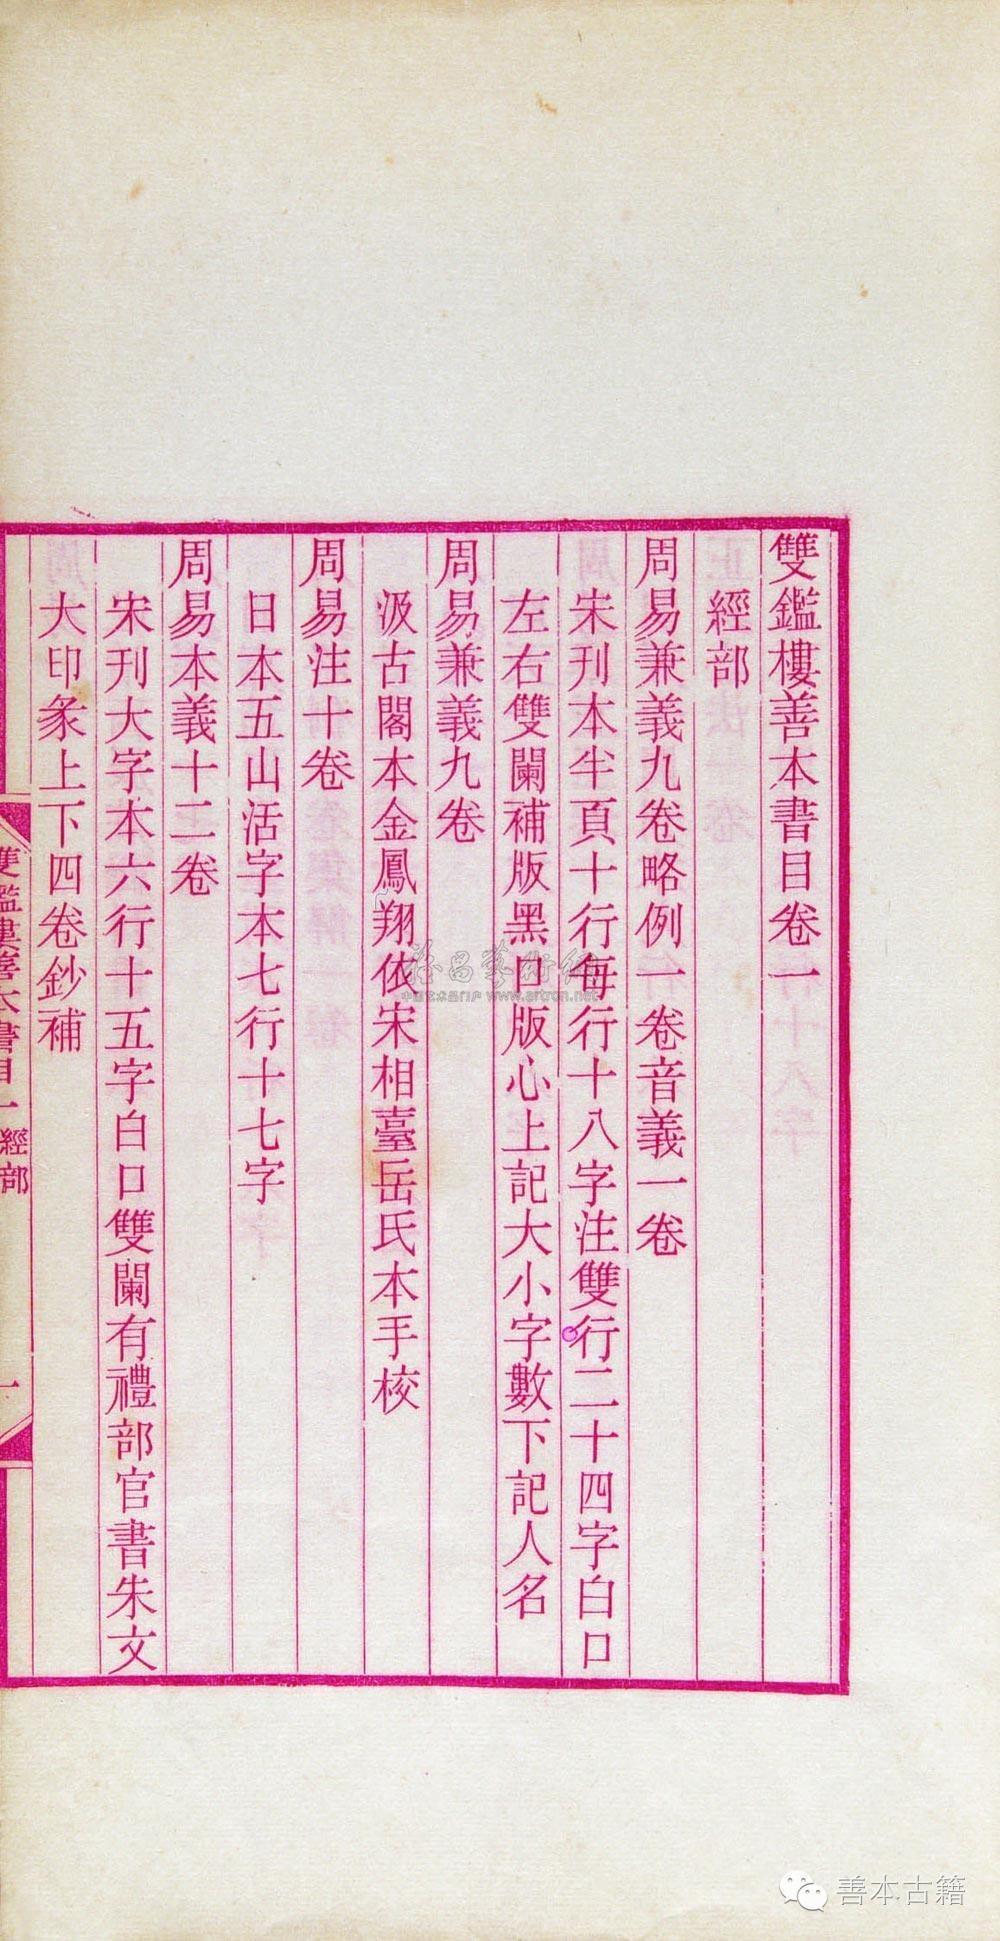 雙鑑樓善本書目卷一
經部
周易兼義九卷略例一卷音義一卷
宋刊本半頁十行每行十八字注雙行二十四字白口
左右雙闌補版黑口版心上記大小字數下記人名
周易兼義九卷
汲古閣本金鳳翔依宋相臺岳氏本手校
周易注十卷
日本五山活字本七行十七字
周易本義十二卷
宋刊大字本六行十五字白口雙闌有禮部官書朱文
大印彖上下四卷鈔補
雙鑑樓善本書目一經部
一
www.artron.net
善本古籍